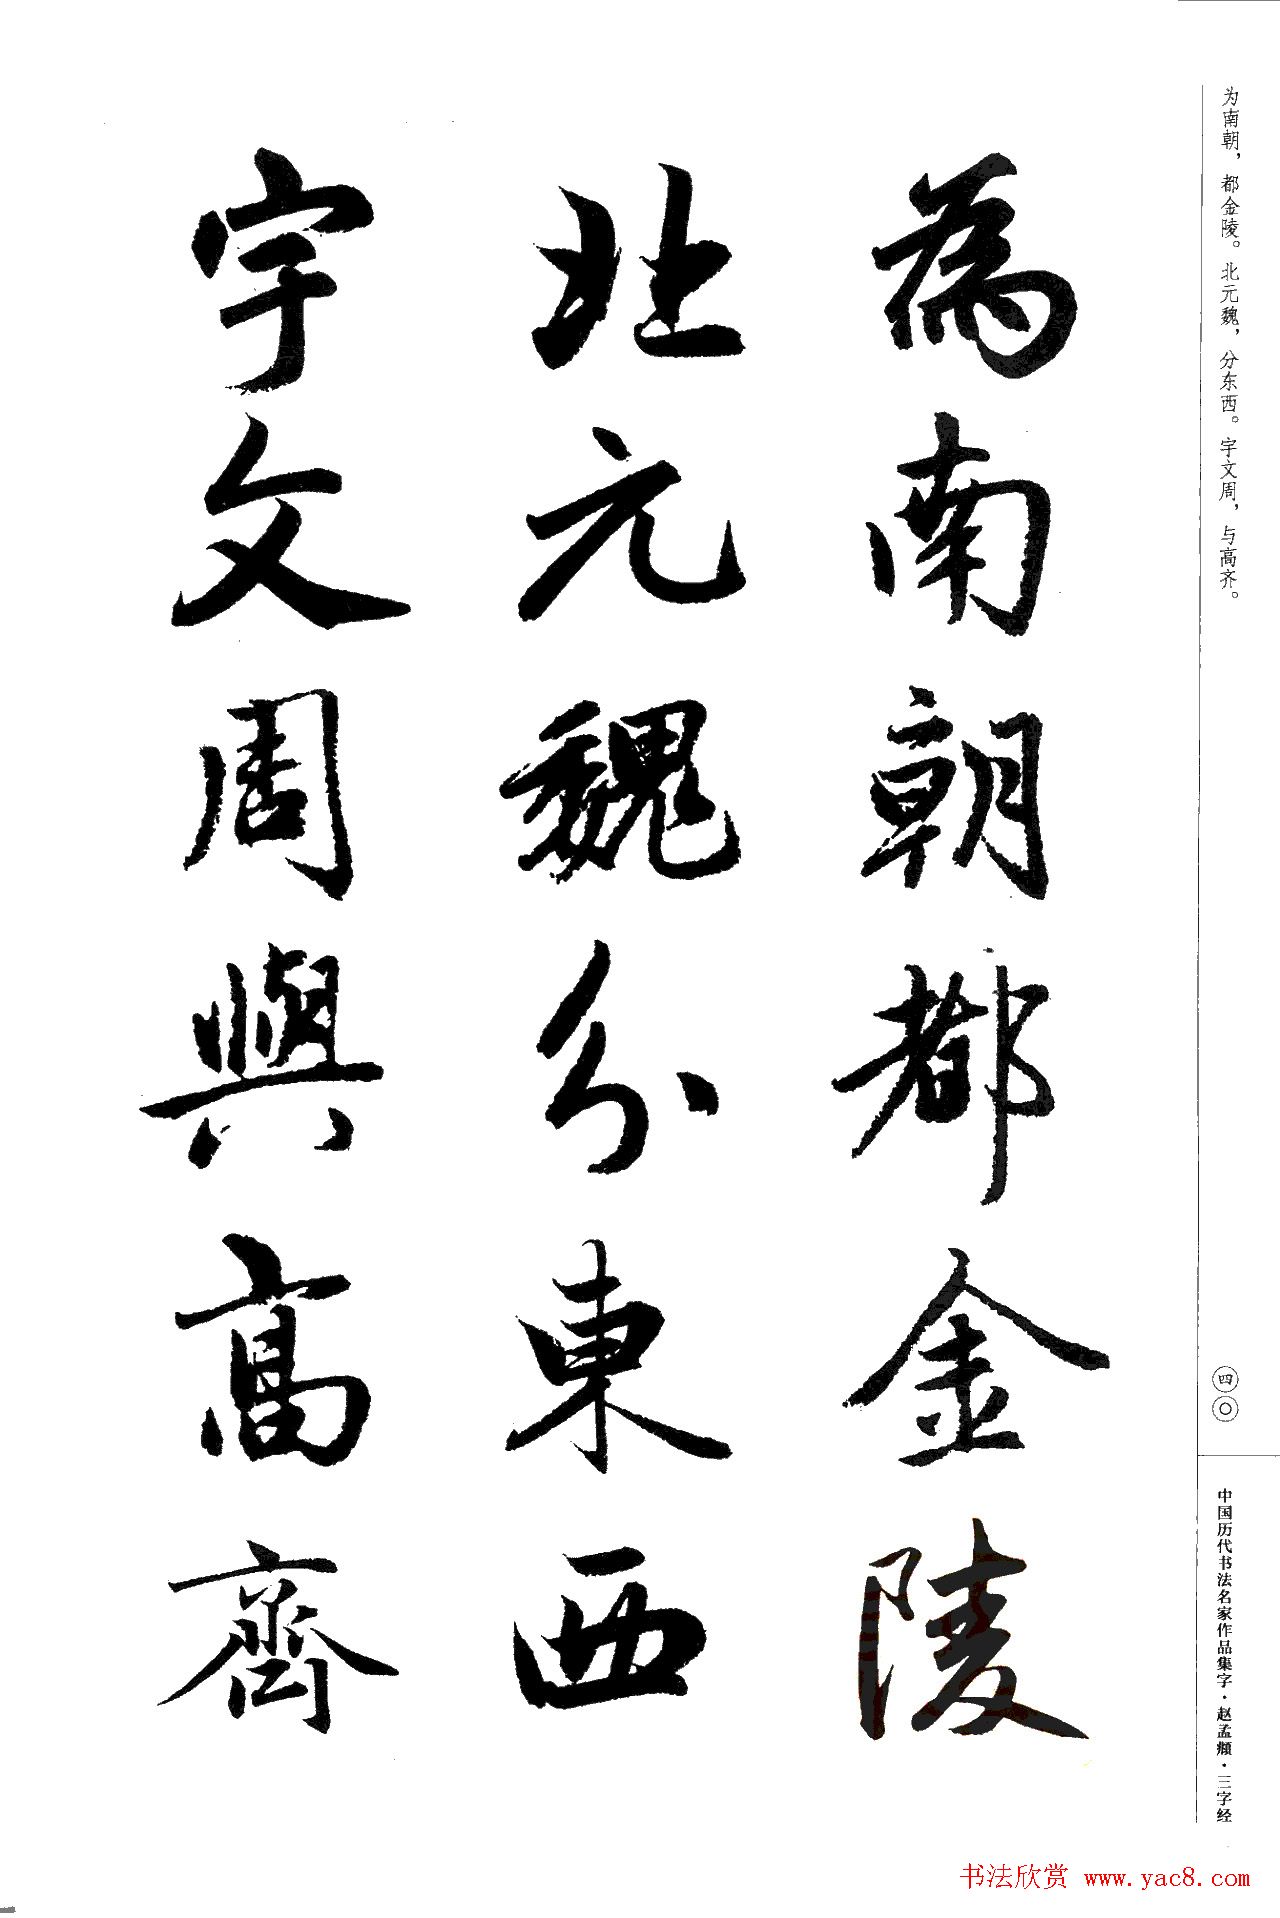 为南朝，都金陵。北元魏，分东西。宇文周，与高齐。
為南朝都金陵
北元魏分東西
宇文周與高齊
四〇
中国历代书法名家作品集字·赵孟頫·三字经
书法欣赏 www.yac8.com